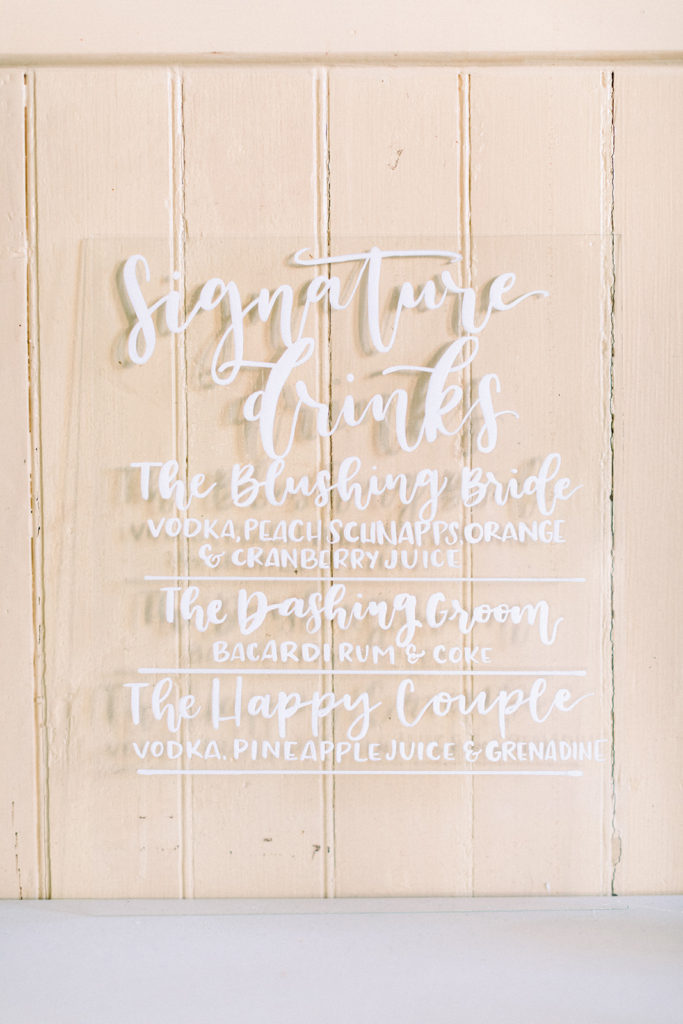 Signature
drinks
The Blushing Bride
VODKA, PEACH SCHNAPPS, ORANGE
& CRANBERRY JUICE
The Dashing Groom
BACARDI RUM & COKE
The Happy Couple
VODKA, PINEAPPLE JUICE & GRENADINE